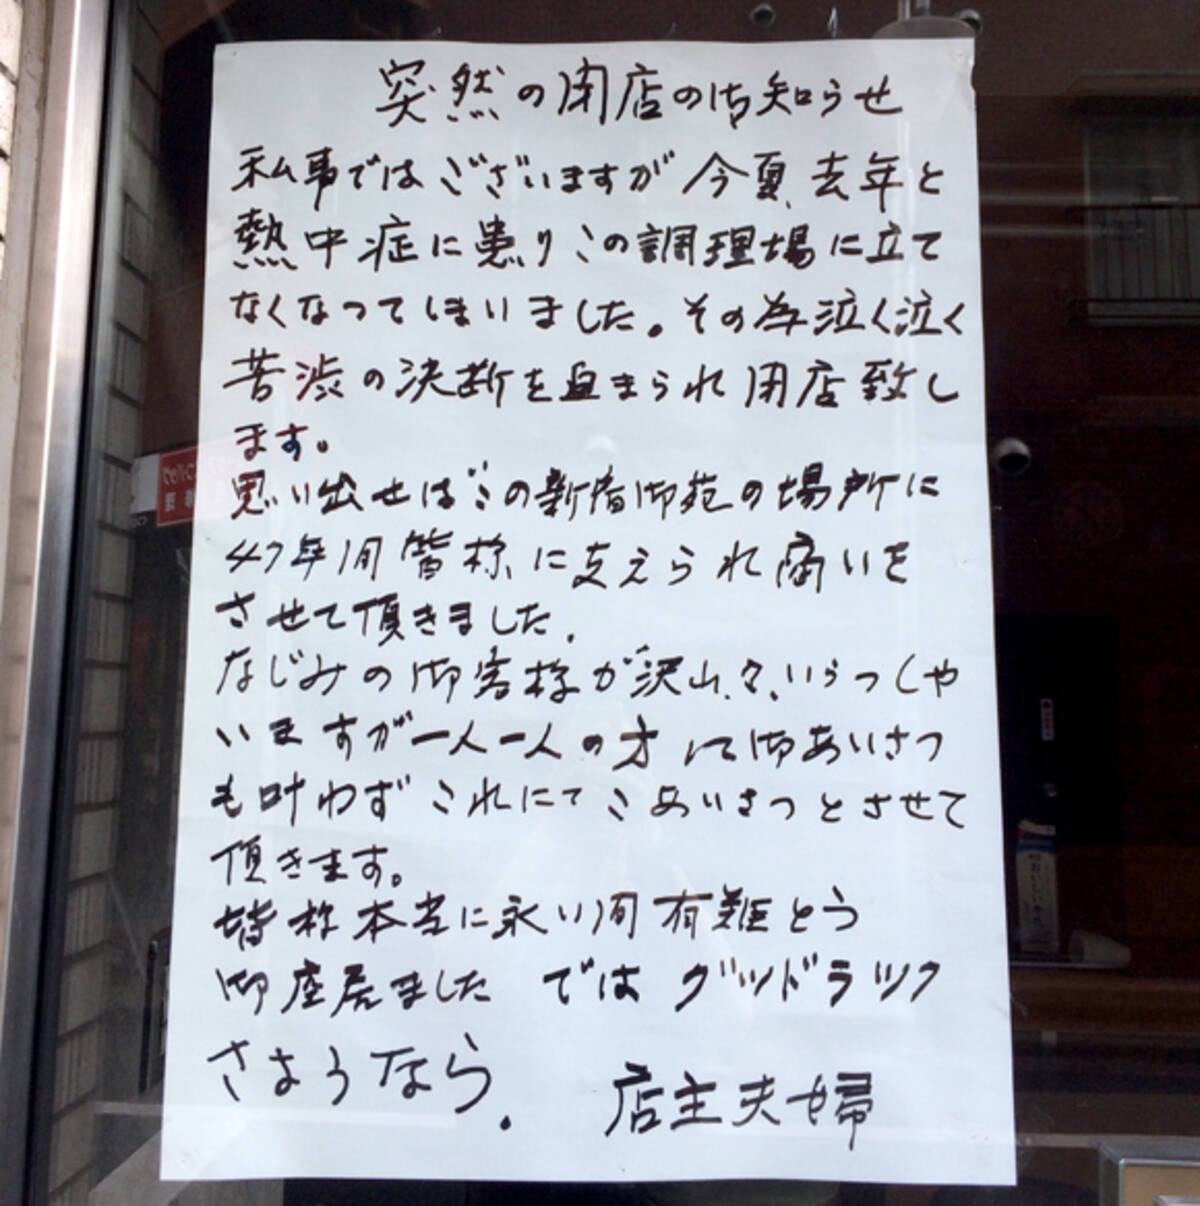 突然の閉店の御知らせ
私事ではございますが今夏、去年と
熱中症に患りこの調理場に立て
なくなってしまいました。その為泣く泣く
苦渋の決断を迫られ閉店致し
ます。
思い出せばこの新宿御苑の場所に
47年間皆様に支えられ商いを
させて頂きました.
なじみの御客様が沢山々、いらっしゃ
いますが一人一人の方に御あいさつ
も叶わずこれにてごあいさつとさせて
頂きます。
皆様本当に永い間有難とう
御座居ました では グッドラック
さようなら.
店主夫婦